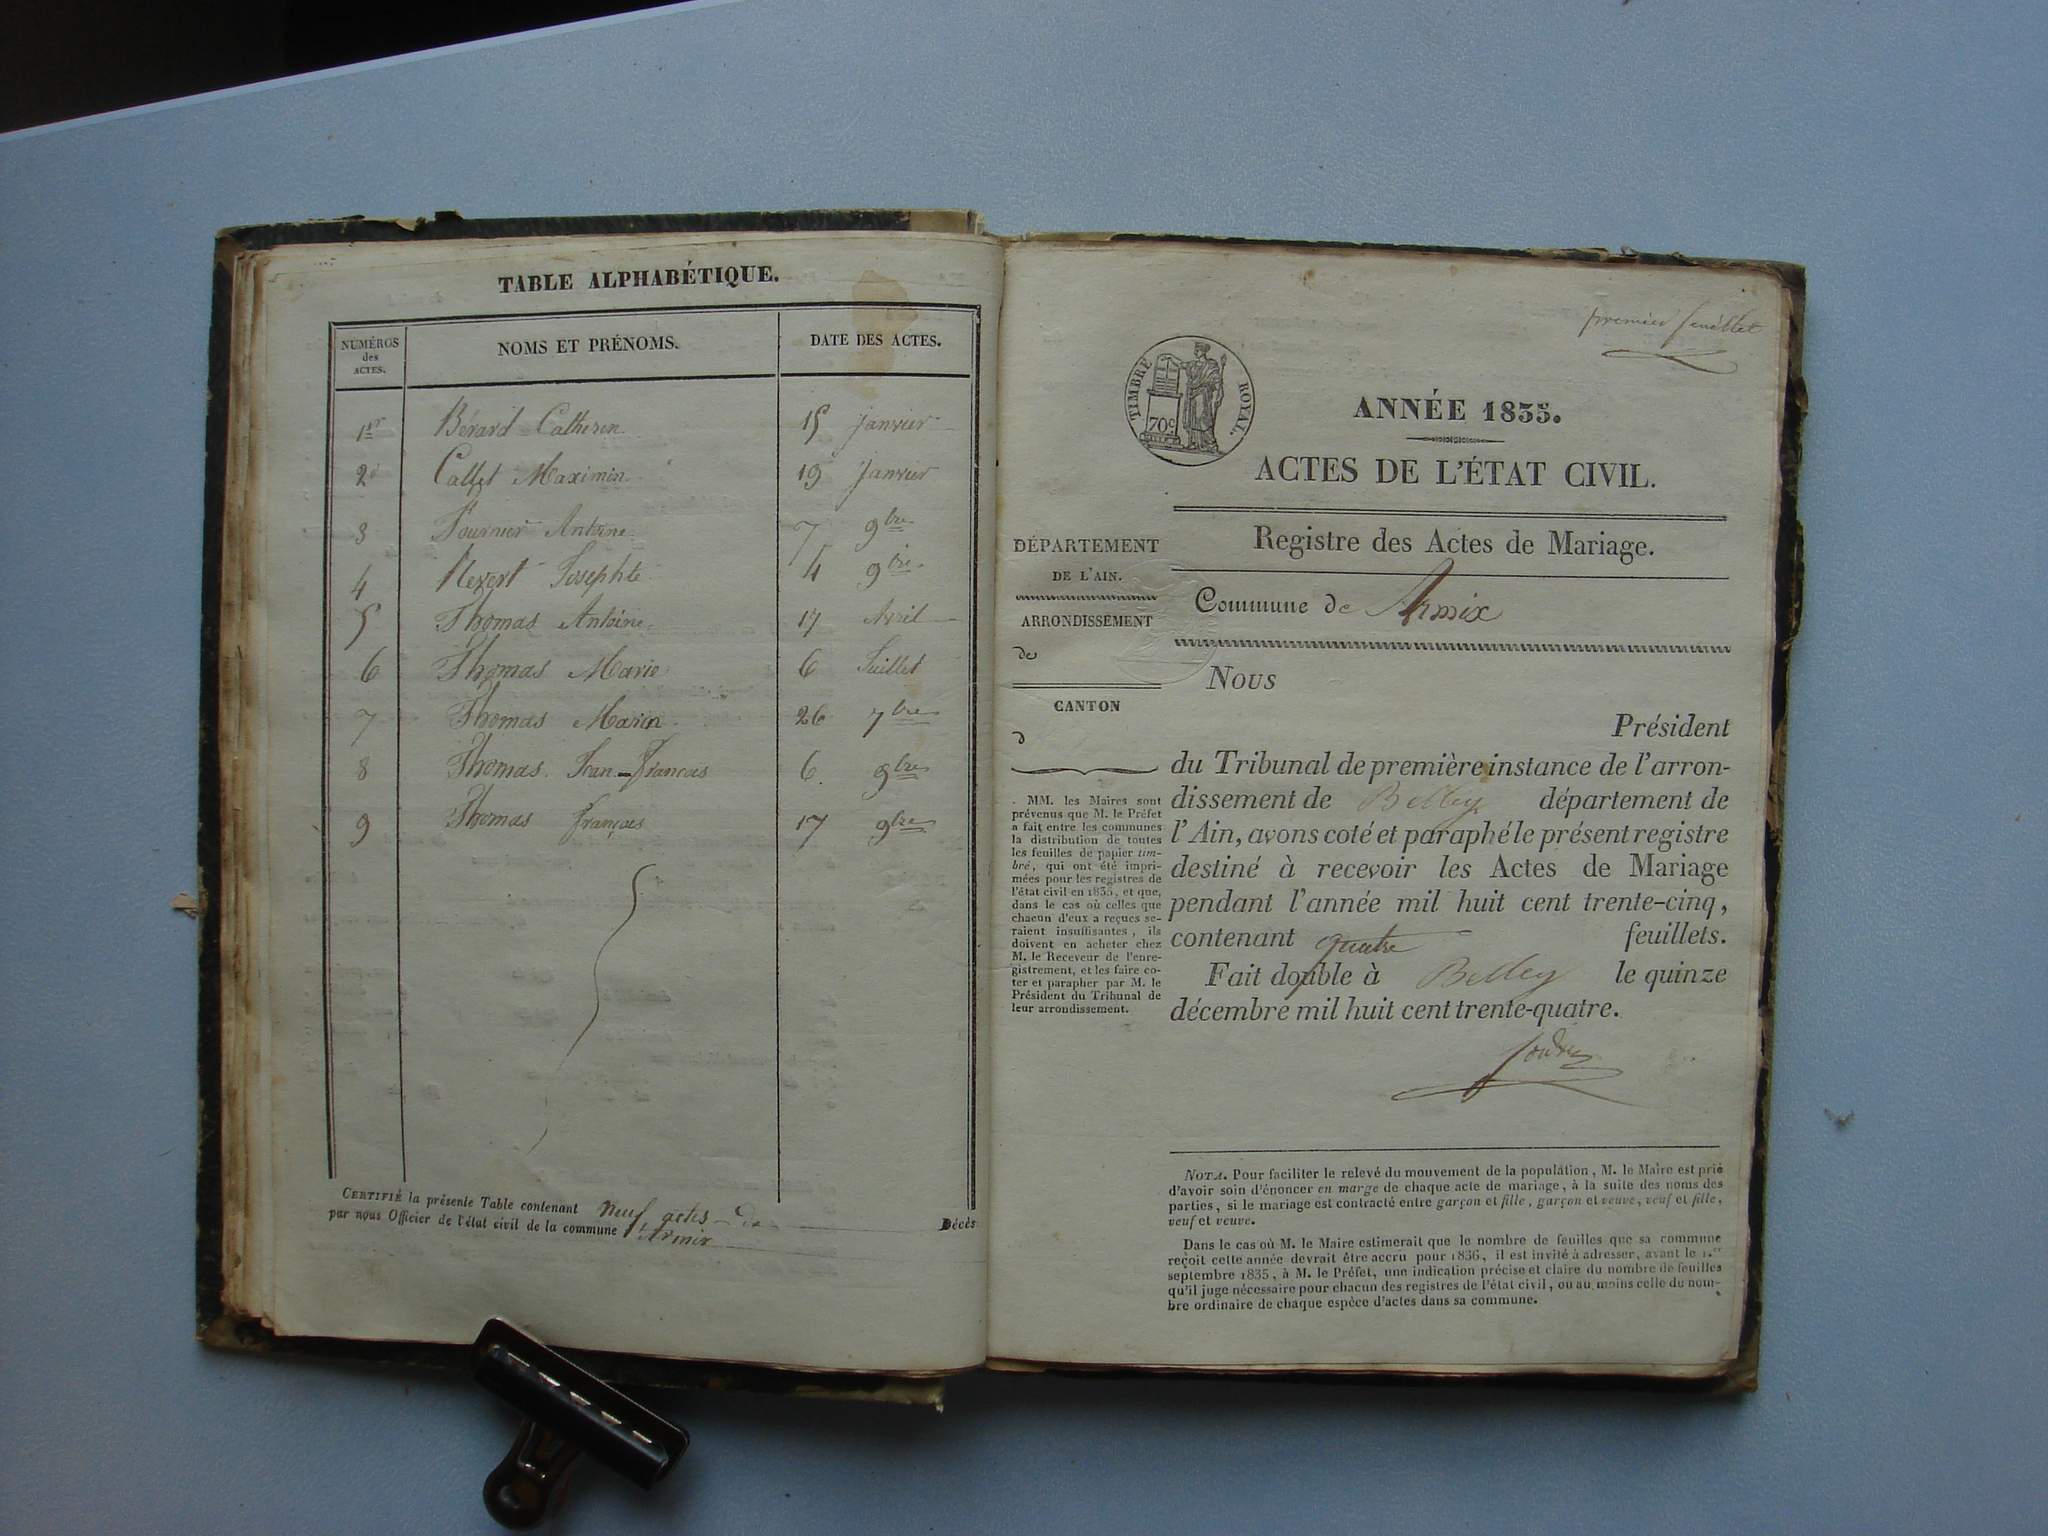 TABLE ALPHABÉTIQUE.
NUMÉROS des ACTES. NOMS ET PRÉNOMS. DATE DES ACTES.
1er Bérard Catherin 15 janvier
2d Callet Maximin 19 janvier
3 Fournier Antoine 7 9bre
4 Josephte 4 9bre
5 Thomas Antoine 17 Avril
6 Thomas Marie 6 Juillet
7 Thomas Marin 26 7bre
8 Thomas Jean-François 6 9bre
9 Thomas françois 17 9bre
CERTIFIÉ la présente Table contenant neuf actes de Décès
par nous Officier de l'état civil de la commune d'Armix
premier feuillet
TIMBRE ROYAL.
70c.
ANNÉE 1835.
ACTES DE L'ÉTAT CIVIL.
Registre des Actes de Mariage.
DÉPARTEMENT
DE L'AIN.
ARRONDISSEMENT
de
CANTON
d
MM. les Maires sont
prévenus que M. le Préfet
a fait entre les communes
la distribution de toutes
les feuilles de papier tim-
bré, qui ont été impri-
mées pour les registres de
l'état civil en 1835, et que,
dans le cas où celles que
chacun d'eux a reçues se-
raient insuffisantes, ils
doivent en acheter chez
M. le Receveur de l'enre-
gistrement, et les faire co-
ter et parapher par M. le
Président du Tribunal de
leur arrondissement.
Commune de Armix
Nous
Président
du Tribunal de première instance de l'arron-
dissement de Belley département de
l'Ain, avons coté et paraphé le présent registre
destiné à recevoir les Actes de Mariage
pendant l'année mil huit cent trente-cinq,
contenant quatre feuillets.
Fait double à Belley le quinze
décembre mil huit cent trente-quatre.
NOTA. Pour faciliter le relevé du mouvement de la population, M. le Maire est prié
d'avoir soin d'énoncer en marge de chaque acte de mariage, à la suite des noms des
parties, si le mariage est contracté entre garçon et fille, garçon et veuve, veuf et fille,
veuf et veuve.
Dans le cas où M. le Maire estimerait que le nombre de feuilles que sa commune
reçoit cette année devrait être accru pour 1836, il est invité à adresser, avant le 1.er
septembre 1835, à M. le Préfet, une indication précise et claire du nombre de feuilles
qu'il juge nécessaire pour chacun des registres de l'état civil, ou au moins celle du nom-
bre ordinaire de chaque espèce d'actes dans sa commune.